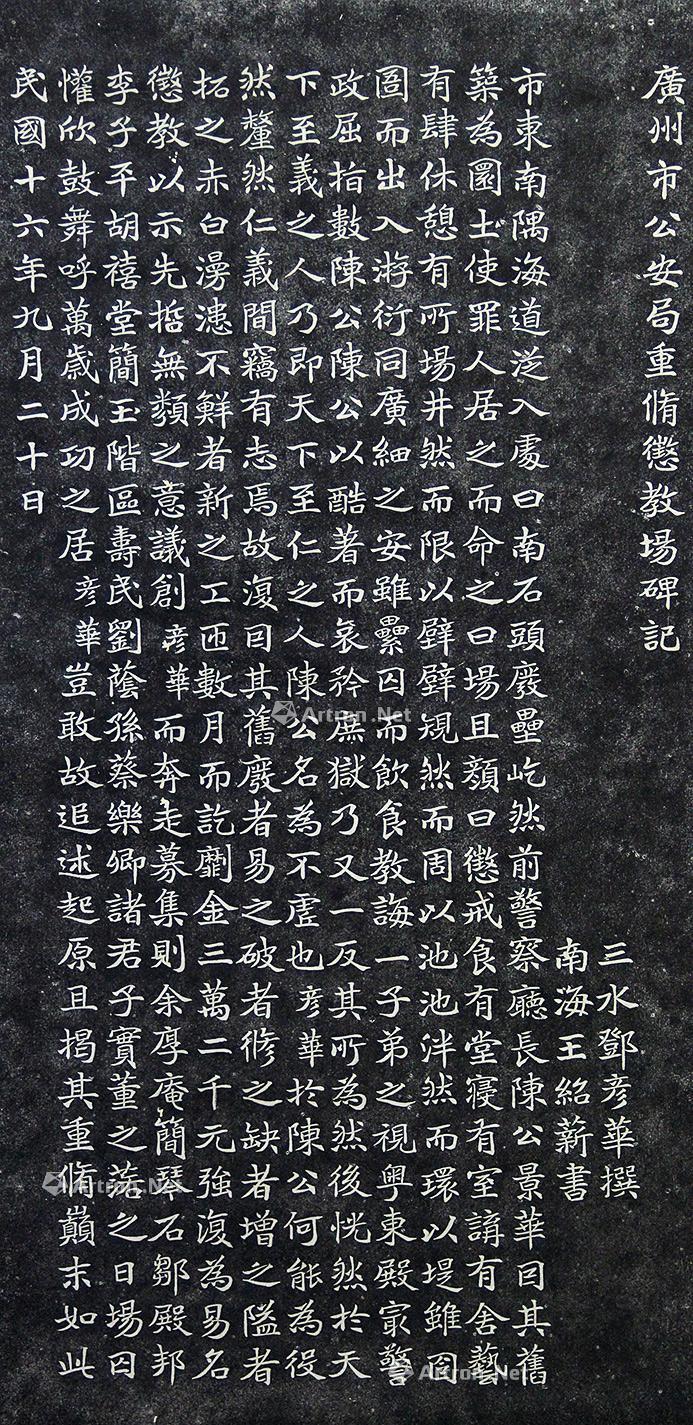 廣州市公安局重脩懲教場碑記
三水鄧彦華撰
南海王紹薪書
市東南隅海道泛入處曰南石頭廢壘屹然前警察廳長陳公景華因其舊
築為圜土使罪人居之而命之曰場且顏曰懲戒食有堂寢有室講有舍藝
有肆休憩有所場井然而限以壁壁規然而周以池池泮然而環以堤雖曰
圄而出入游衍同廣細之安雖纍囚而飲食教誨一子弟之視粵東殿最警
政屈指數陳公陳公以酷著而哀矜庶獄乃又一反其所為然後恍然於天
下至義之人乃即天下至仁之人陳公名為不虛也彦華於陳公何能為役
然釐然仁義間竊有志焉故復因其舊廢者易之破者修之缺者增之隘者
拓之赤白漫漶不鮮者新之工匝數月而訖劚金三萬二千元強復為易名
懲教以示先哲無類之意議創彦華而奔走募集則余厚庵簡琴石鄒殿邦
李子平胡禧堂簡玉階區壽民劉蔭孫蔡樂卿諸君子實董之落之日場囚
懽欣鼓舞呼萬歲成功之居彦華豈敢故追述起原且揭其重脩巔末如此
民國十六年九月二十日
Artron.Net
Artron.Net
Artron.Net